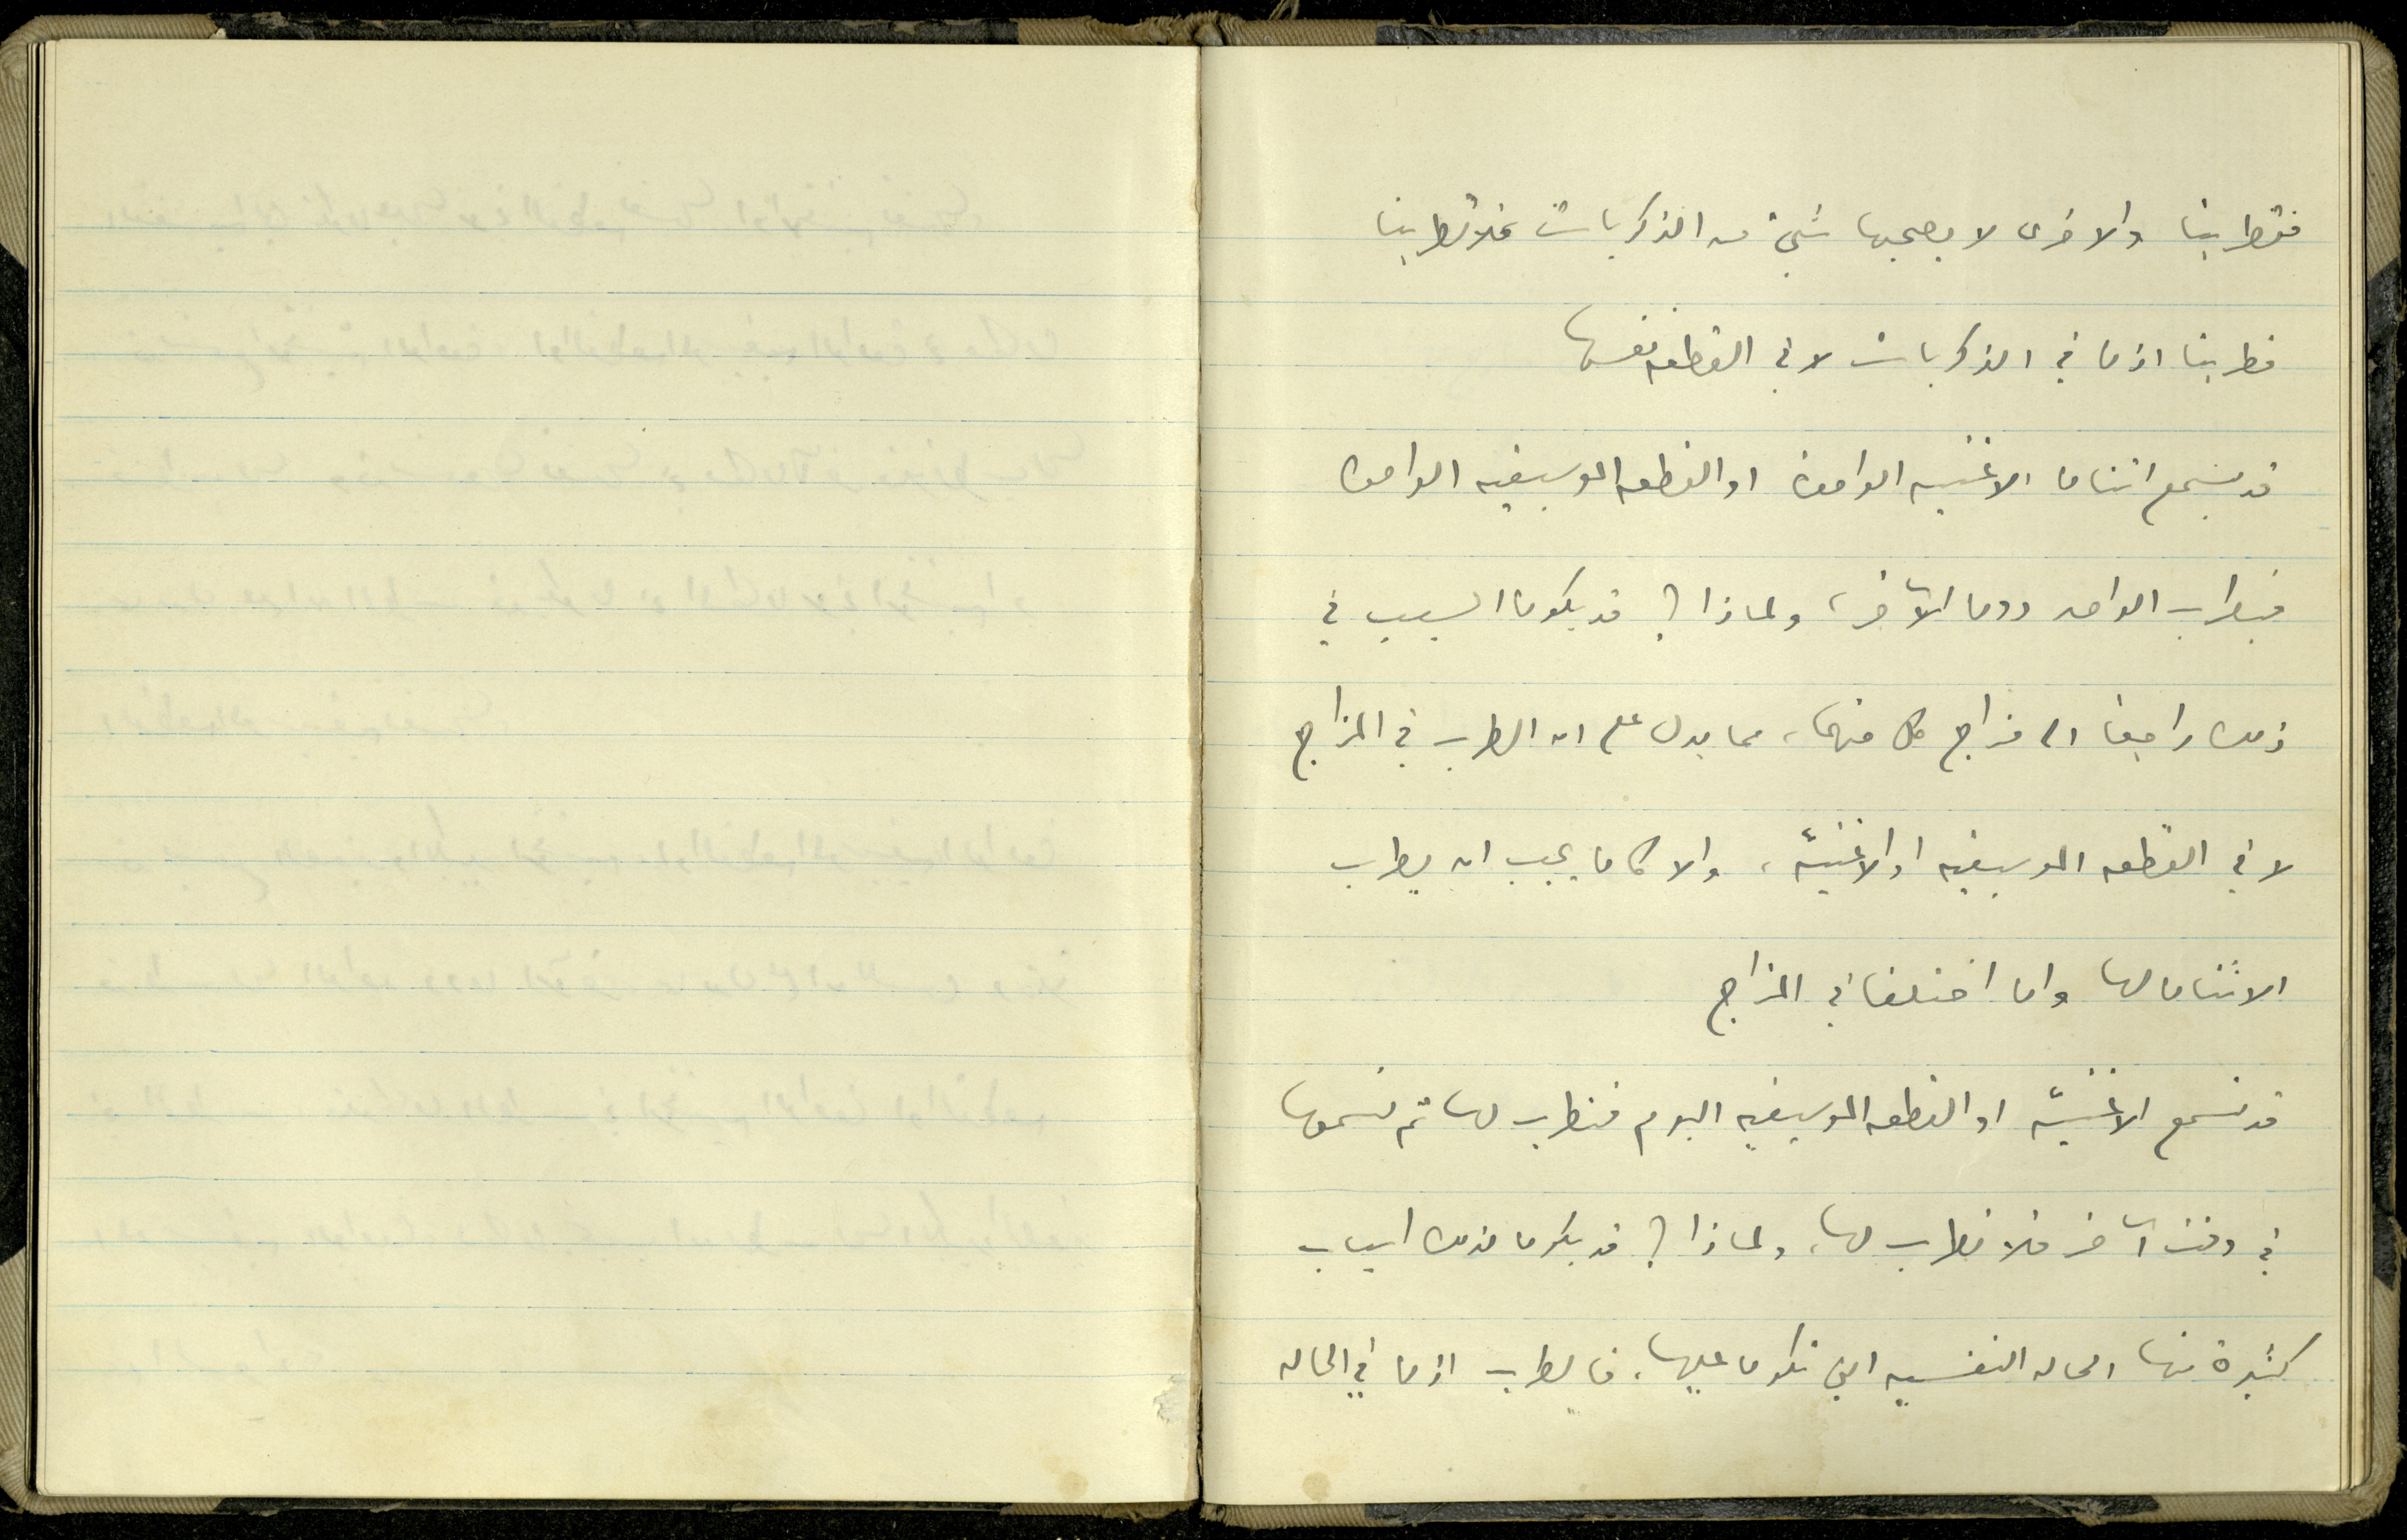 فتطربنا والاخرى لا يصحبها شيء من الذكريات فلا تطربنا
فطربنا اذن في الذكريات لا في القطعه نفسها
قد يسمع اثنان الاغنيه الواحدة او القطعه الموسيقيه الواحدة
فيطرب الواحد دون الآخر، ولماذا ؟ قد يكون السبب في
ذلك راجعا الى مزاج كل منهما، مما يدل على ان الطرب في المزاج
لا في القطعه الموسيقيه او الاغنيّه، والا كان يجب ان يطرب
الاثنان لها وان اختلفا في المزاج
قد نسمع الاغنيّه او القطعه الموسيقيه اليوم فنطرب لها ثم نسمعها
في وقت آخر فلا نطرب لها، ولماذا ؟ قد يكون لذلك اسباب
كثيرة منها الحاله النفسيه التي نكون عليها، فالطرب اذن في الحاله